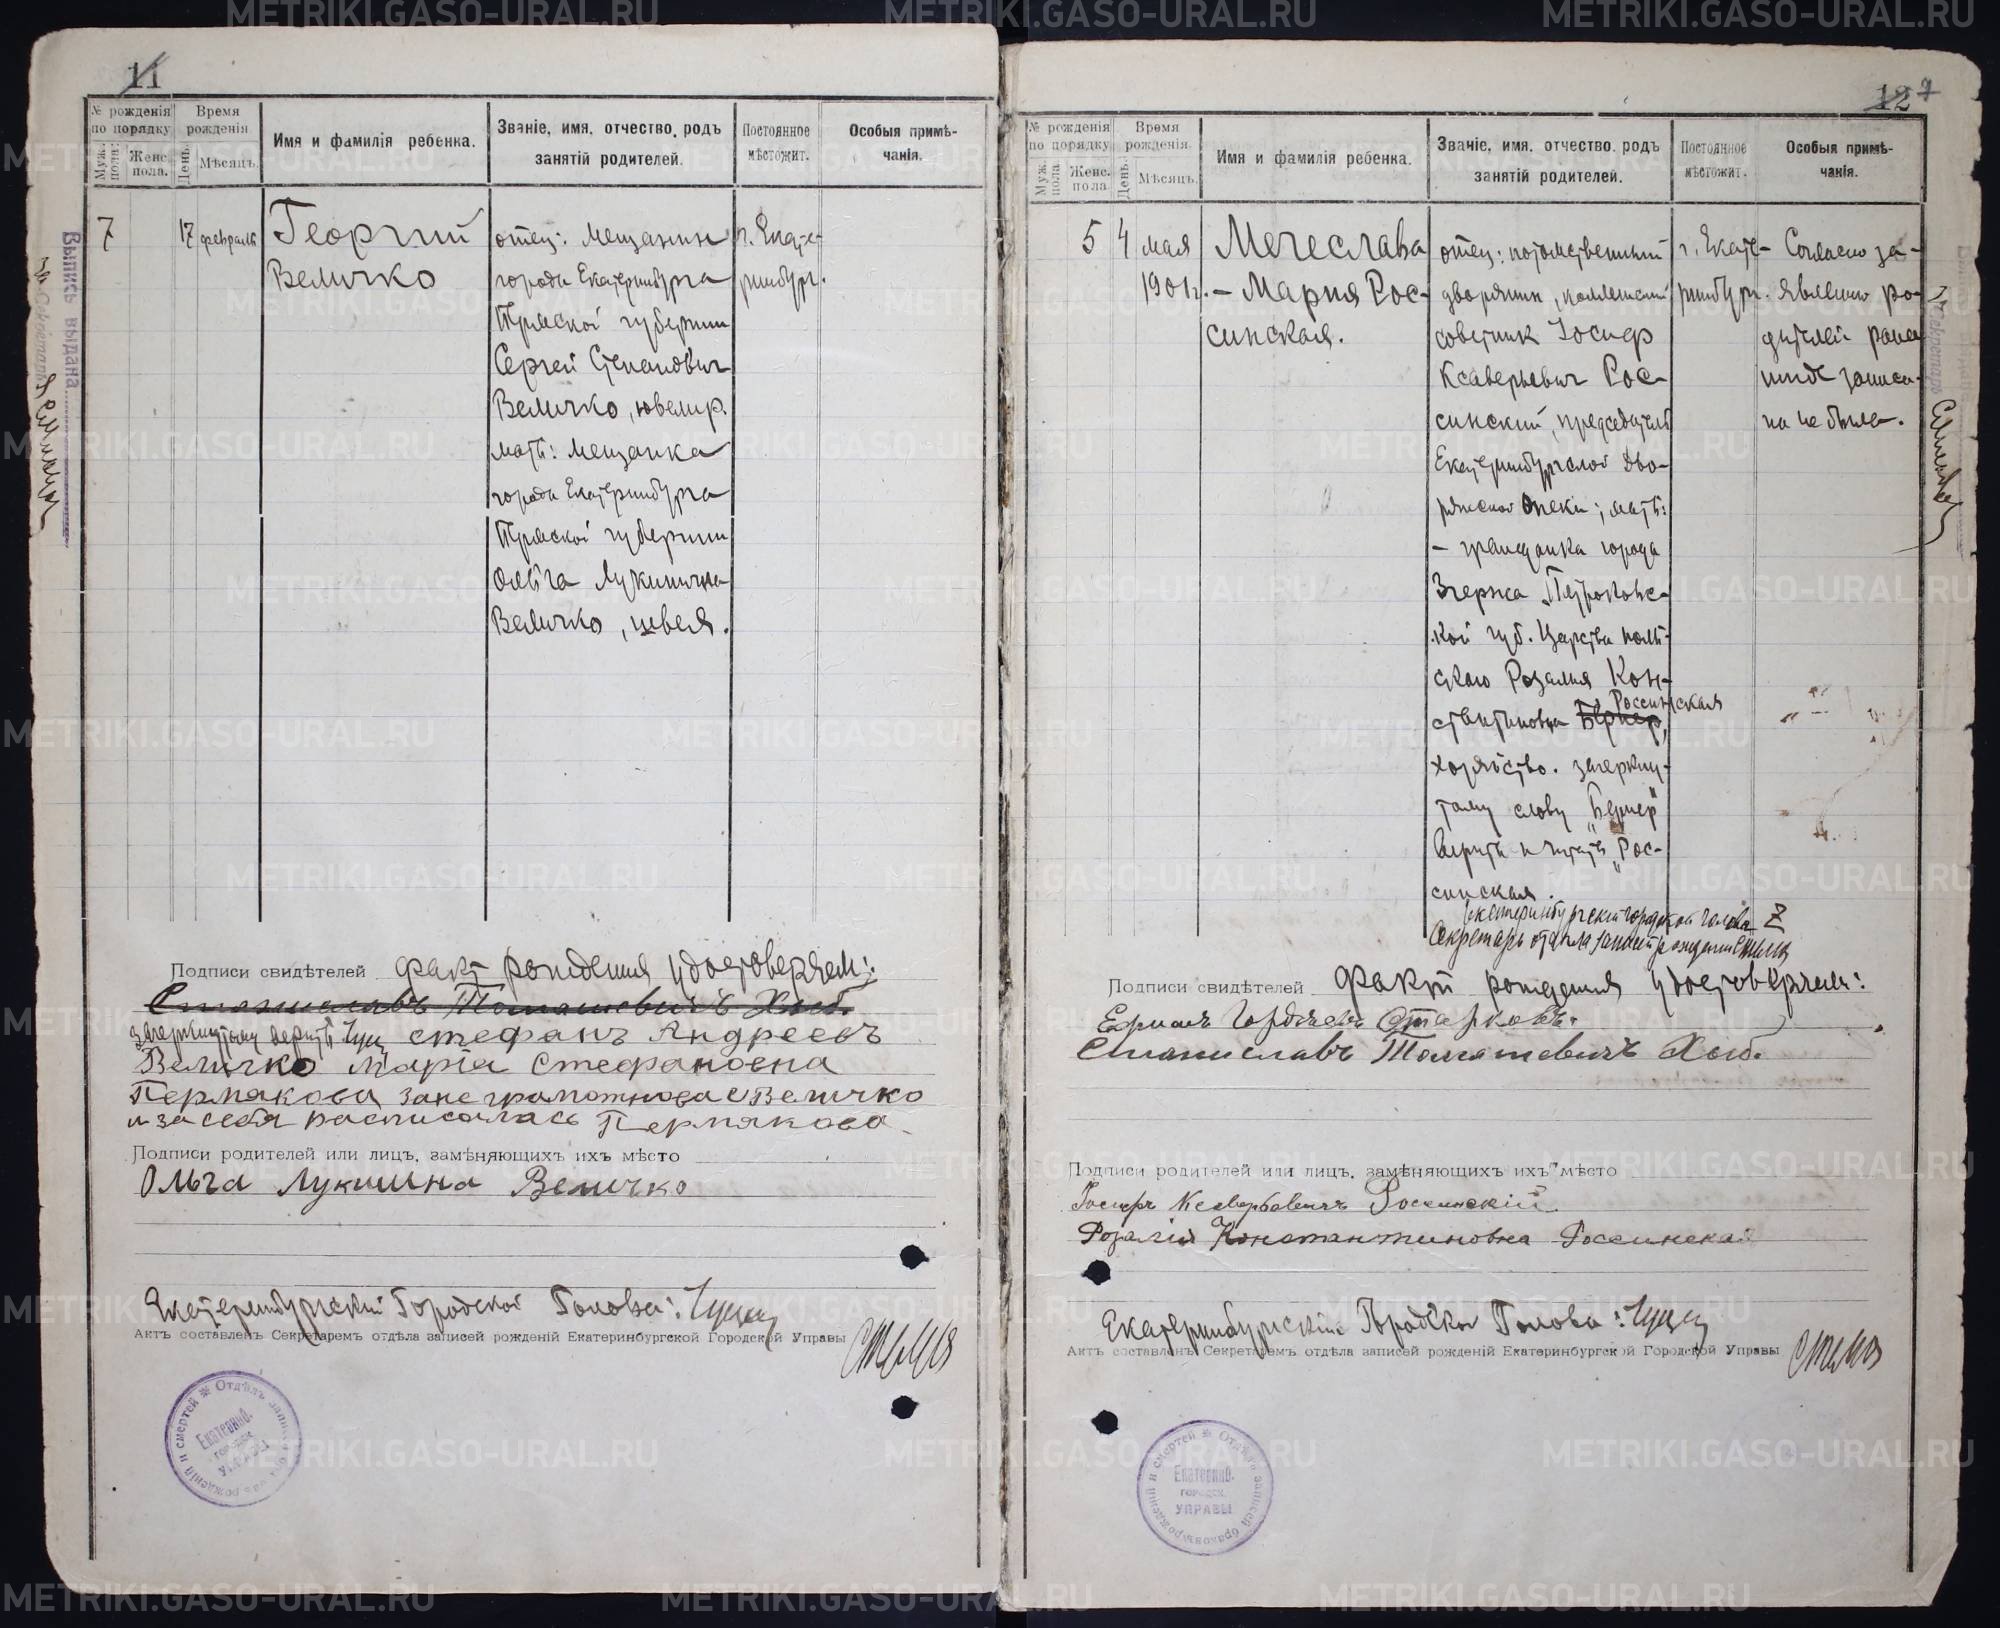 11
№ рожденія по порядку
Муж. пола.
Женс. пола.
Время рожденія
День.
Мѣсяцъ.
Имя и фамилія ребенка.
Званіе, имя, отчество, родъ
занятій родителей.
Постоянное
мѣстожит.
Особыя примѣ-
чанія.
Выпись выдана
7
17
февраля
Георгий
Величко
отец: мещанин
города Екатеринбурга
Пермской губернии
Сергей Степанович
Величко, ювелир.
мать: мещанка
города Екатеринбурга
Пермской губернии
Ольга Лукинична
Величко, швея.
г. Екате-
ринбург.
Подписи свидѣтелей факт рождения удостоверяем:
Станиславъ Томашевичъ Хыб.
зачеркнутому верить Стефанъ Андреевъ
Величко Марiа Стефановна
Пермякова за неграмотнова С Величко
и за себя расписалась Пермякова
Подписи родителей или лицъ, замѣняющихъ ихъ мѣсто
Ольга Лукишна Величко
Екатеринбургский Городской Голова:
Актъ составленъ Секретаремъ отдѣла записей рожденій Екатеринбургской Городской Управы
Отдѣлъ записей браковъ, рожденій и смертей
Екатеринб.
городск.
управы
12 7
№ рожденія по порядку
Муж. пола
Женс. пола
Время рожденія.
День.
Мѣсяцъ.
Имя и фамилія ребенка.
Званіе, имя, отчество, родъ
занятій родителей.
Постоянное
мѣстожит.
Особыя примѣ-
чанія.
5
4
мая
1901 г.
Мечеслава
– Мария Рос-
синская.
отец: потомственный
дворянин, коллежский
советник Иосиф
Ксаверьевич Рос-
синский, председатель
Екатеринбургской Дво-
рянской Опеки; мать:
– гражданка города
Згержа Петроковс-
кой губ. Царства Поль-
ского Розалия Кон-
Россинская
стантиновна Бернер,
хозяйство. зачеркну-
тому слову "Бернер"
верить и читать "Рос-
синская.
Екатеринбургский городской голова
Секретарь отдела записей рождений
г. Екате-
ринбург.
Согласно за-
явлению ро-
дителей ранее
нигде записа-
на не была.
Подписи свидѣтелей Факт рождения удостоверяем:
Ефимъ Гордеевъ Старковъ.
Станиславъ Томашевичъ Хыб.
Подписи родителей или лицъ, замѣняющихъ ихъ мѣсто
Іосифъ Ксаверьевичъ Россинскій
Розалія Константиновна Россинская
Екатеринбургский Городской Голова:
Актъ составленъ Секретаремъ отдѣла записей рожденій Екатеринбургской Городской Управы
Отдѣлъ записей браковъ, рожденій и смертей
Екатеринб.
городск.
управы
METRIKI.GASO-URAL.RU